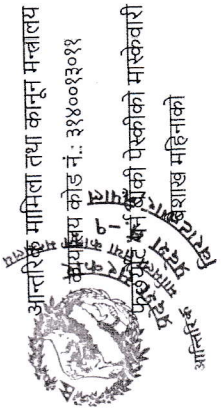 आन्तरिक मामिला तथा कानून मन्त्रालय
कार्यालय कोड नं.: ३१४००१३०११
फर्छ्यौट गर्न बाँकी पेस्कीको मास्केवारी
बैशाख महिनाको
आन्तरिक